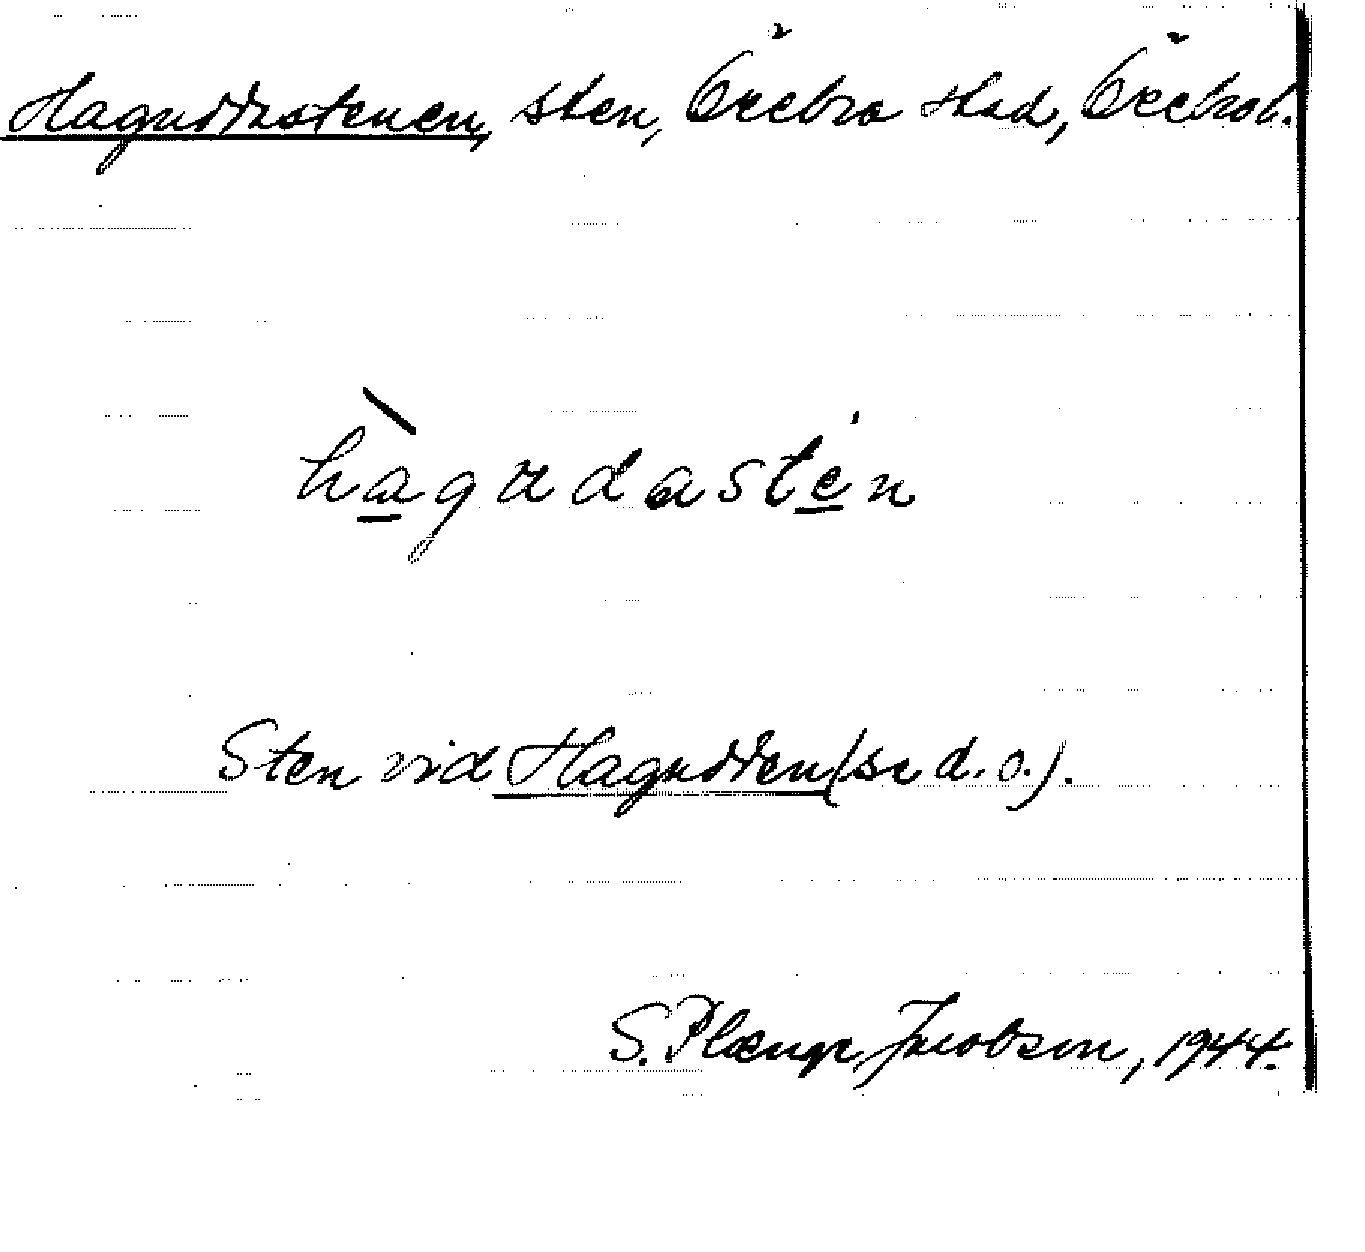 Haguddestenen, sten, Örebro stad, Örebrol.
hagudastén
Sten vid Hagudden (se d. o.).
S. Plænge Jacobson, 1944.